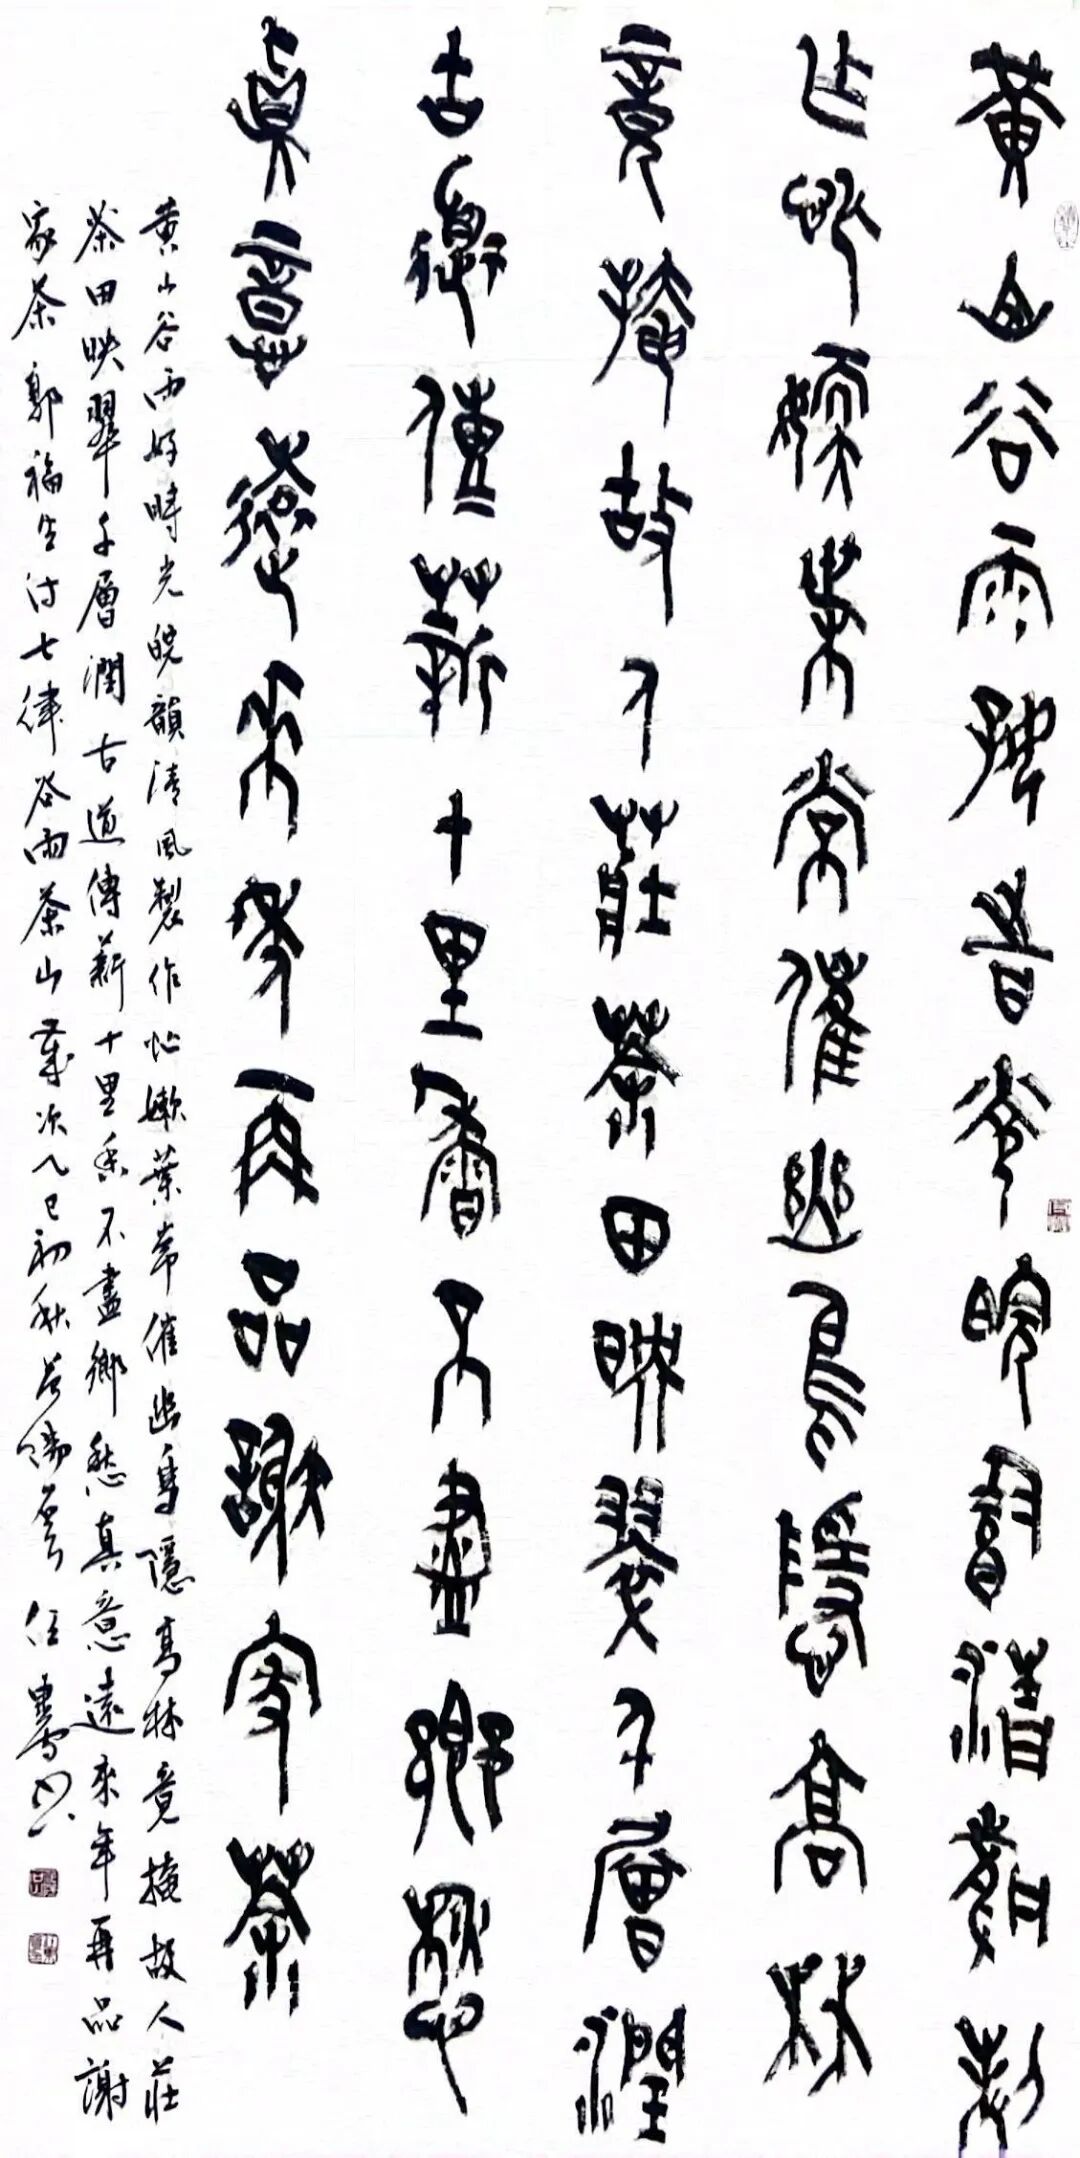 黃山谷雨好時光皖韻清風製
作忙嫩葉常催幽鳥隱高林
竟掩故人莊茶田映翠千層潤
古道傳薪十里香不盡鄉愁
真意遠來年再品謝家茶
黃山谷雨好時光皖韻清風製作忙嫩葉常催幽鳥隱高林竟掩故人莊
茶田映翠千層潤古道傳薪十里香不盡鄉愁真意遠來年再品謝
家茶郭福生詩七律谷雨茶山歲次乙巳初秋